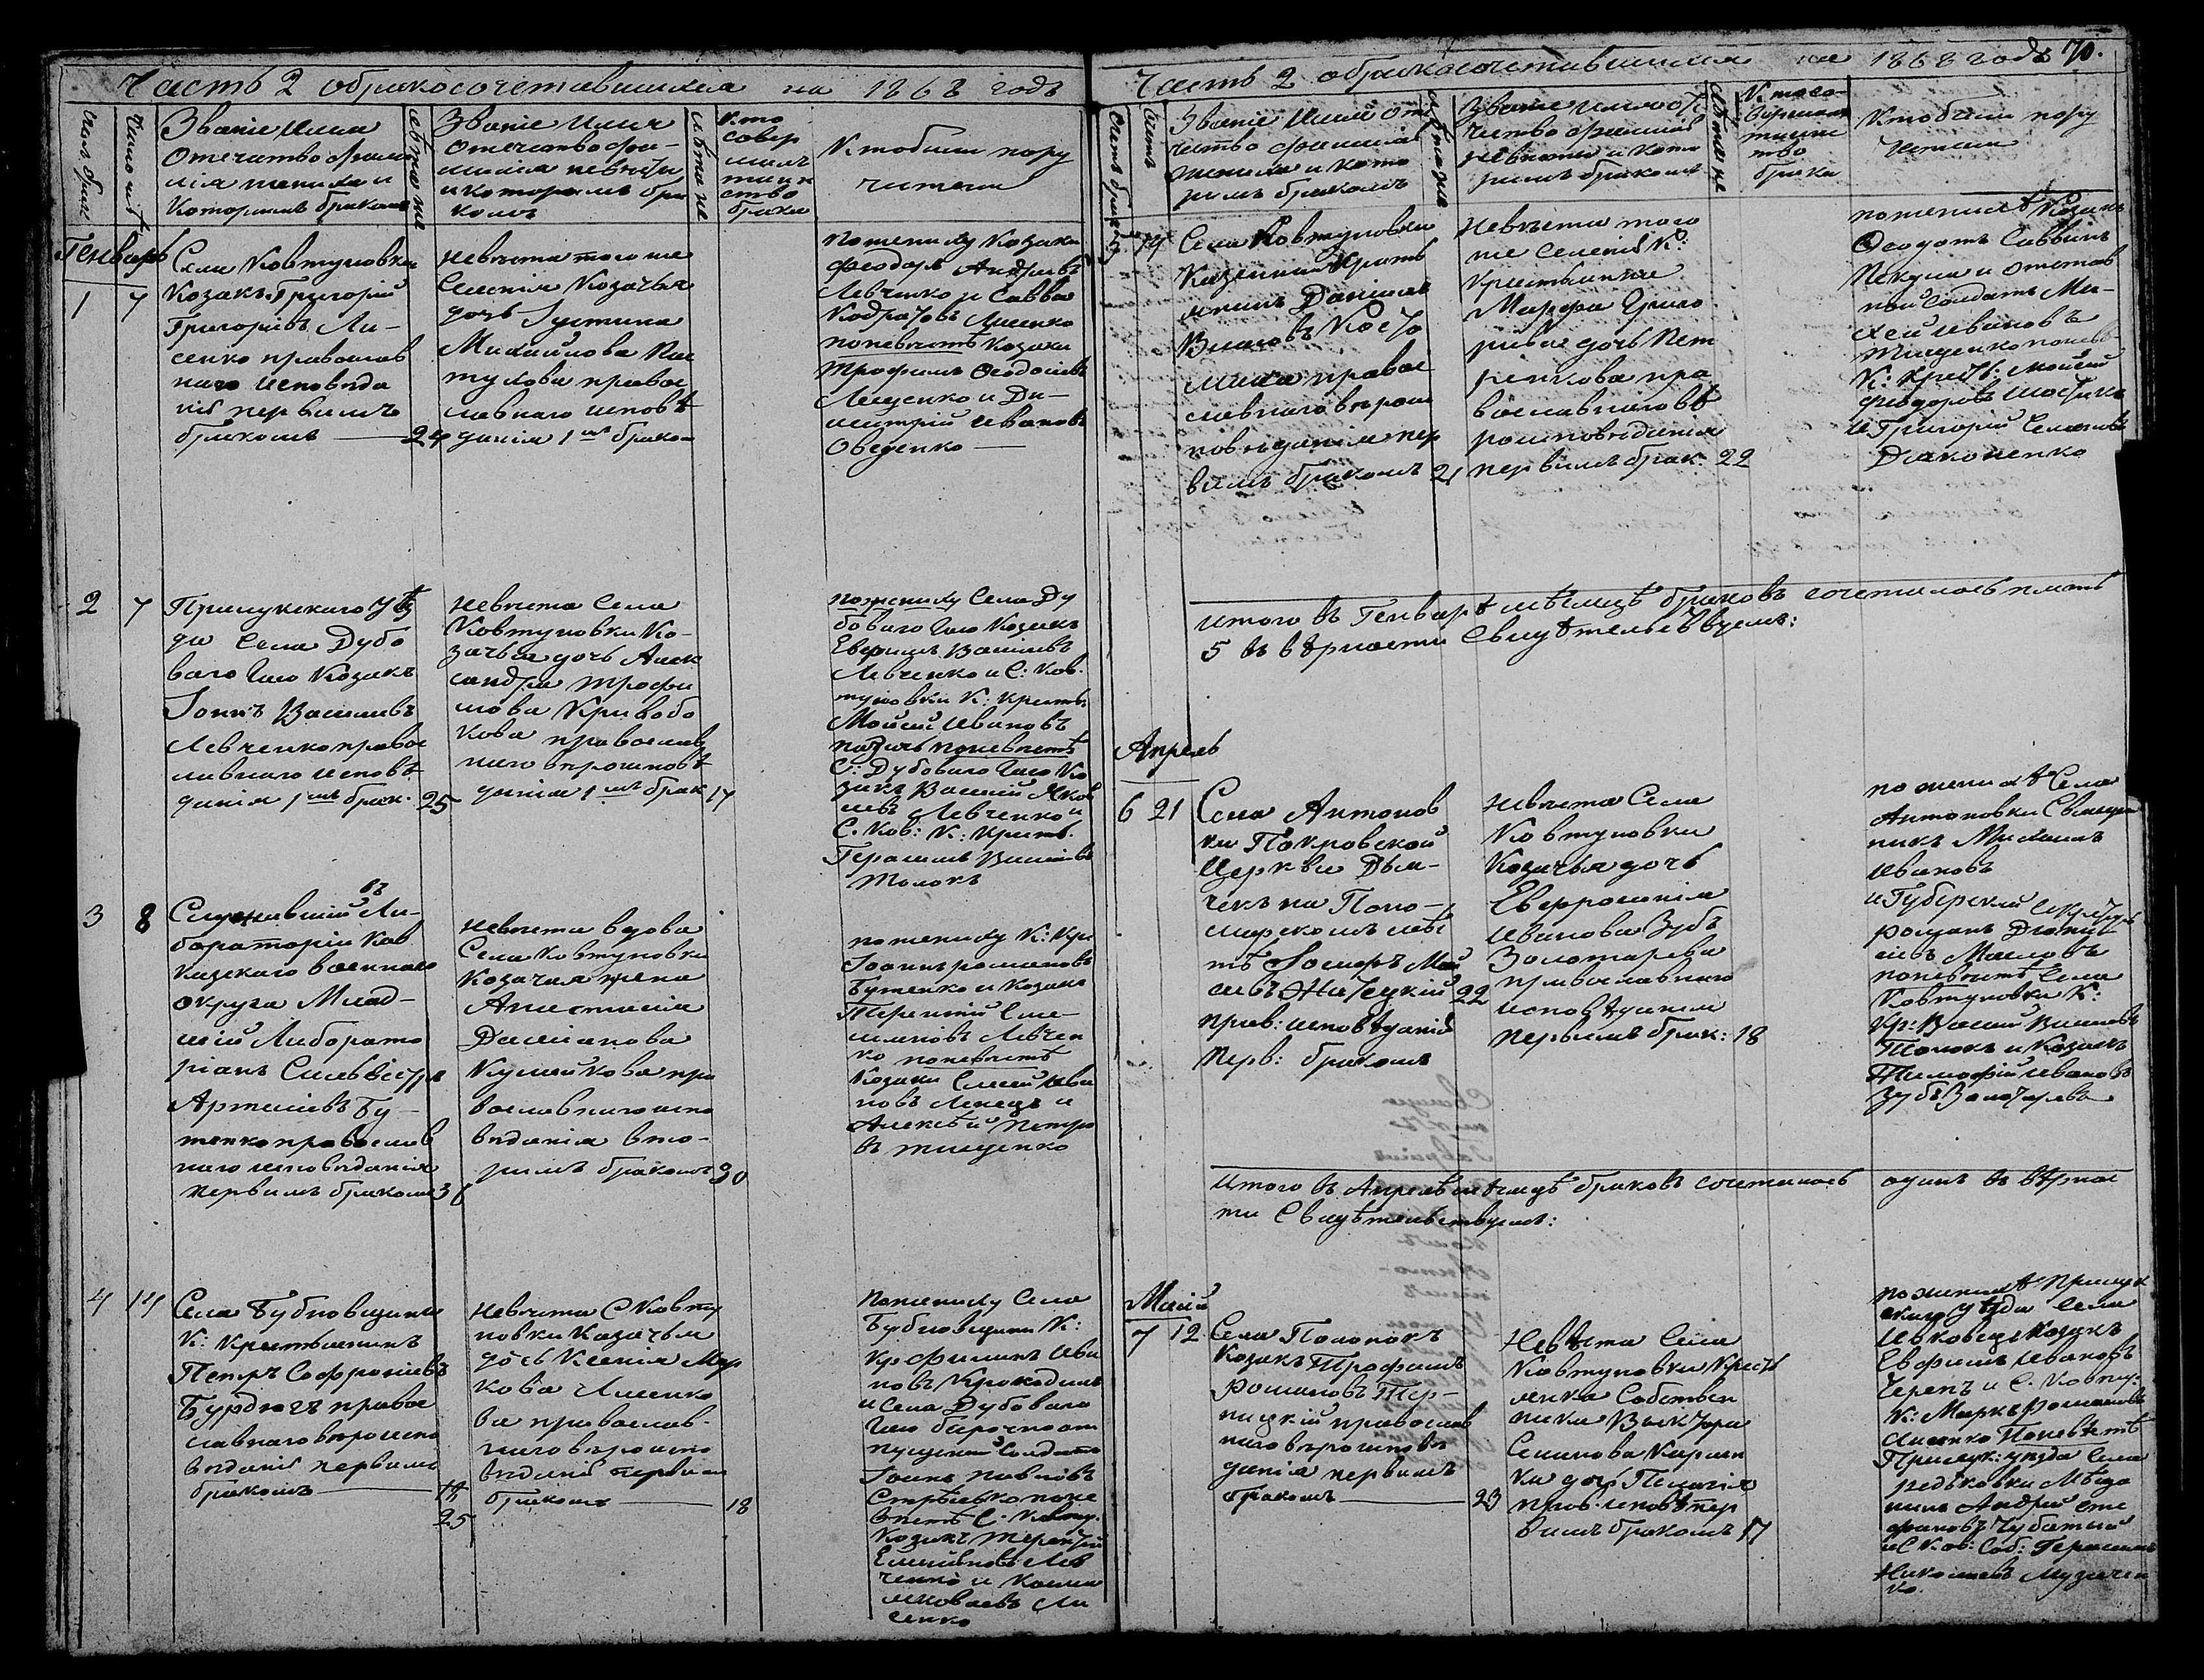 Часть 2 obракосочетавшихся на 1868 годъ
Званіе имя
Отечество фами
лія жениха и
которымъ бракомъ
лѣта его
Званіе имя
Отечество фа-
милія невѣсты
и которымъ бра
комъ
лѣта ее
Кто
совер
шилъ
таин
ство
брака
Кто были пору
чители
Генварь
1 7
Села Ковтуновки
Козакъ Григорій
Григоріевъ Ли-
сенко православ
наго исповѣда
нія первымъ
бракомъ — 24
невѣста того же
Селенія Козачья
дочь Iустина
Михайлова Пас
тухова право
славнаго исповѣ
данія 1мъ браком
по жениху Козаки
Феодоръ Андреевъ
Левченко и Савва
Кодратовъ Лисенко
по невѣстѣ Козаки
Трофимъ Феодосіевъ
Лещенко и Ди-
митрій Ивановъ
Оведенко —
2 7
Прилукскаго Уѣз
да Села Дубо
ваго Гаю Козакъ
Iоаннъ Василіевъ
Левченко право
славнаго исповѣ
данія 1мъ брак. 25
невѣста Села
Ковтуновки Ко-
зачья дочь Алек
сандра Трофи
мова Кривобо
кова православ
наго вѣроисповѣ
данія 1мъ брак 17
по жениху Села Ду
боваго Гаю Козакъ
Евфимъ Василіевъ
Левченко и С: Ков.
туновки К: крестья
Мойсей Ивановъ
по невѣстѣ
С: Дубоваго Гаю Ко
закъ Василій Яков
левъ Левченко и
С. Ков: К: Крестья.
Герасимъ Василіевъ
Толокъ
3 8
Служившій въ Ла-
бораторіи Кав
казскаго военнаго
округа Млад-
шій Лаборато
ріанъ Сильвестръ
Артеміевъ Бу-
тенко православ
наго исповѣданія
первымъ бракомъ 36
невѣста вдова
Села Ковтуновки
Козачья жена
Анастасія
Даміанова
Кулейкова пра
вославнаго испо
вѣданія вто-
рымъ бракомъ 30
по жениху К: Кр:
Iоаннъ Романовъ
Бутенко и Козакъ
Терентій Еме-
ліановъ Левчен
ко по невѣстѣ
Козаки Ива
новъ и
Алексѣй Петро
въ Тищенко
4 14
Села Бубновщины
К: Крестьянинъ
Петръ Софроніевъ
Бурдюгъ право
славнаго вѣроиспо
вѣданія первымъ
бракомъ — 25
невѣста С Ковту
новки Казачья
дочь Ксенія Мар
кова Лисенко
ва православ-
наго вѣроиспо
вѣданія первым
бракомъ — 18
По жениху Села
Бубновщини К:
Кр Филипъ Ива
новъ Крокодилъ
и Села Дубоваго
Гаю безсрочно от
пущенный Солдатъ
Iоанъ Павловъ
Стрѣлько по не
вѣстѣ С. Ковту.
Козакъ Терентій
Емеліановъ Лев
ченко и Козма
Яковлевъ Ли
сенко
Часть 2 обракосочетавшихся на 1868 годъ 70.
Званіе Имя От
чество фамилія
жениха и кото
рымъ бракомъ
Званіе имя от
чество фамилія
невѣсты и кото
рымъ бракомъ
Кто со-
вершилъ
таинс
тво
брака
Кто были пору
чители
5 14
Села Ковтуновки
Казенный Крестья
нинъ Даніилъ
Власовъ Косто
 право
славнаго вѣроис
повѣданія пер
вымъ бракомъ 21
Невѣста того
же Селенія К:
крестьянка
Марфа Григо
ріева дочь Пет
ренкова пра
вославнаго вѣ
роисповѣданія
первымъ брак. 22
по женихѣ Козакъ
Феодотъ Саввинъ
Пекуша и отстав
ной Солдатъ Ми-
хей Ивановъ
Тищенко по невѣс
К: Крест: Мойсей
Феодоровъ Шостакъ
и Григорій Семеновъ
Дяконенко
Итого въ Генварѣ мѣсяцѣ браковъ сочеталось пять
5 въ вѣрности Свидѣтельствуемъ:
Апрель
6 21
Села Антонов
ки Покровской
Церкви Дья-
чекъ на Поно-
марскомъ мѣс
тѣ Iосифъ Мои
сеевъ Житецкій 22
прав: исповѣданія
перв: бракомъ
Невѣста Села
Ковтуновки
Козачья дочь
Евфросинія
Иванова Зубъ
Золотарева
православнаго
исповѣданія
первымъ брак: 18
по женихѣ Села
Антоновки Священ
никъ Михаилъ
Ивановъ
и Губерскій Секретарь
Романъ Діони
сіевъ Масловъ
по невѣстѣ Села
Ковтуновки К:
Кр: Василій Василіевъ
Толокъ и Козакъ
Тимофій Ивановъ
Зубъ Золотаревъ
Итого въ Апрелѣ мѣсяцѣ браковъ сочеталось одинъ въ вѣрнос
ти Свидѣтельствуемъ:
Маій
7 12
Села Полонокъ
Козакъ Трофимъ
Романовъ Тер-
ницкій православ
наго вѣроисповѣ
данія первымъ
бракомъ — 23
Невѣста Села
Ковтуновки Кресть
янка Собствен
ника Виктора
Семенова Карпен
ка дочь Пелагія
прав. исповѣ пер
вымъ бракомъ 17
по женихѣ Прилук
скаго уѣзда Села
Ивковецъ Козакъ
Евфимъ Ивановъ
Черепъ и С. Ковту:
К: Маркъ Романовъ
Лисенко По невѣстѣ
Прилук: уезда Села
Редьковки Мѣща
нинъ Андрей Сте
фановъ Чубатый
и С Ков: Соб: Герасимъ
Николаевъ Музычен
ко.